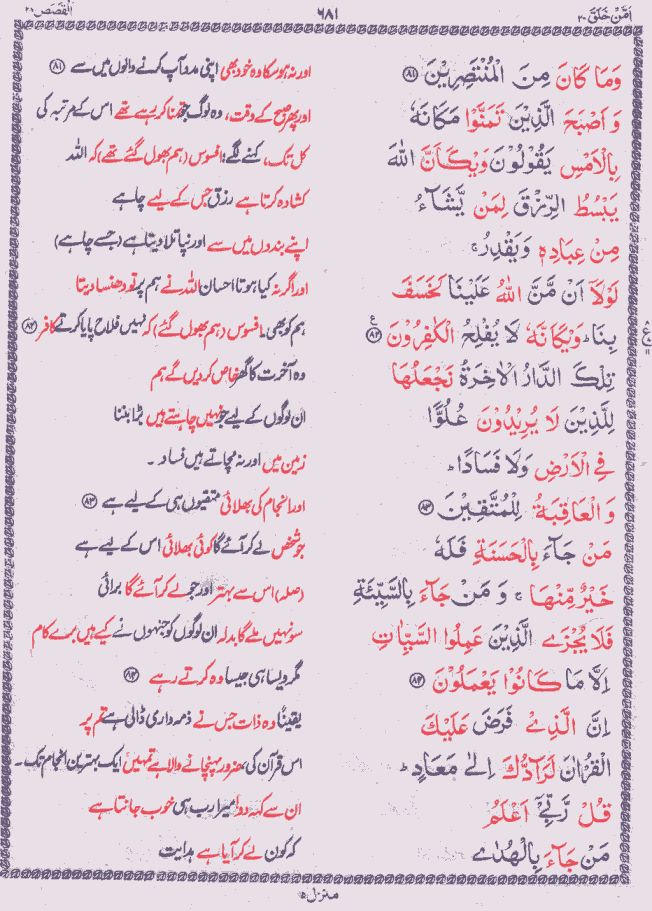 اَمَّنْ خَلَقَ ۲۰
۶۸۱
اَلْقَصَص ۲۸
وَمَا كَانَ مِنَ الْمُنْتَصِرِيْنَ ﴿۸۱﴾
اور نہ ہو سکا وہ خود بھی اپنی مدد آپ کرنے والوں میں سے ﴿۸۱﴾
وَ اَصْبَحَ الَّذِيْنَ تَمَنَّوْا مَكَانَهٗ
اور پھر صبح کے وقت، وہ لوگ جو تمنا کر رہے تھے اس کے مرتبہ کی
بِالْاَمْسِ يَقُوْلُوْنَ وَيْكَاَنَّ اللّٰهَ
کل تک، کہنے لگے: افسوس (ہم بھول گئے تھے) کہ اللہ
يَبْسُطُ الرِّزْقَ لِمَنْ يَّشَآءُ
کشادہ کرتا ہے رزق جس کے لیے چاہے
مِنْ عِبَادِهٖ وَيَقْدِرُ ۚ
اپنے بندوں میں سے اور نپا تلا دیتا ہے (جسے چاہے)
لَوْلَاۤ اَنْ مَّنَّ اللّٰهُ عَلَيْنَا لَخَسَفَ
اور اگر نہ کیا ہوتا احسان اللہ نے ہم پر تو دھنسا دیتا
بِنَا ؕ وَيْكَاَنَّهٗ لَا يُفْلِحُ الْكٰفِرُوْنَ ﴿۸۲﴾
ہم کو بھی۔ افسوس (ہم بھول گئے) کہ نہیں فلاح پایا کرتے کافر ﴿۸۲﴾
تِلْكَ الدَّارُ الْاٰخِرَةُ نَجْعَلُهَا
وہ آخرت کا گھر خاص کر دیں گے ہم
لِلَّذِيْنَ لَا يُرِيْدُوْنَ عُلُوًّا
ان لوگوں کے لیے جو نہیں چاہتے ہیں بڑا بننا
فِي الْاَرْضِ وَلَا فَسَادًا ؕ
زمین میں اور نہ مچاتے ہیں فساد ۔
وَ الْعَاقِبَةُ لِلْمُتَّقِيْنَ ﴿۸۳﴾
اور انجام کی بھلائی متقیوں ہی کے لیے ہے ﴿۸۳﴾
مَنْ جَآءَ بِالْحَسَنَةِ فَلَهٗ
جو شخص لے کر آئے گا کوئی بھلائی اس کے لیے ہے
خَيْرٌ مِّنْهَا ۚ وَ مَنْ جَآءَ بِالسَّيِّئَةِ
(صلہ) اس سے بہتر اور جو لے کر آئے گا برائی
فَلَا يُجْزَى الَّذِيْنَ عَمِلُوا السَّيِّاٰتِ
سو نہیں ملے گا بدلہ ان لوگوں کو جنہوں نے کیے ہیں برے کام
اِلَّا مَا كَانُوْا يَعْمَلُوْنَ ﴿۸۴﴾
مگر ویسا ہی جیسا وہ کرتے رہے ﴿۸۴﴾
اِنَّ الَّذِيْ فَرَضَ عَلَيْكَ
یقیناً وہ ذات جس نے ذمہ داری ڈالی ہے تم پر
الْقُرْاٰنَ لَرَآدُّكَ اِلٰى مَعَادٍ ؕ
اس قرآن کی، ضرور پہنچانے والا ہے تمہیں ایک بہترین انجام تک۔
قُلْ رَّبِّيْۤ اَعْلَمُ
ان سے کہہ دو! میرا رب ہی خوب جانتا ہے
مَنْ جَآءَ بِالْهُدٰى
کہ کون لے کر آیا ہے ہدایت
منزل ۵